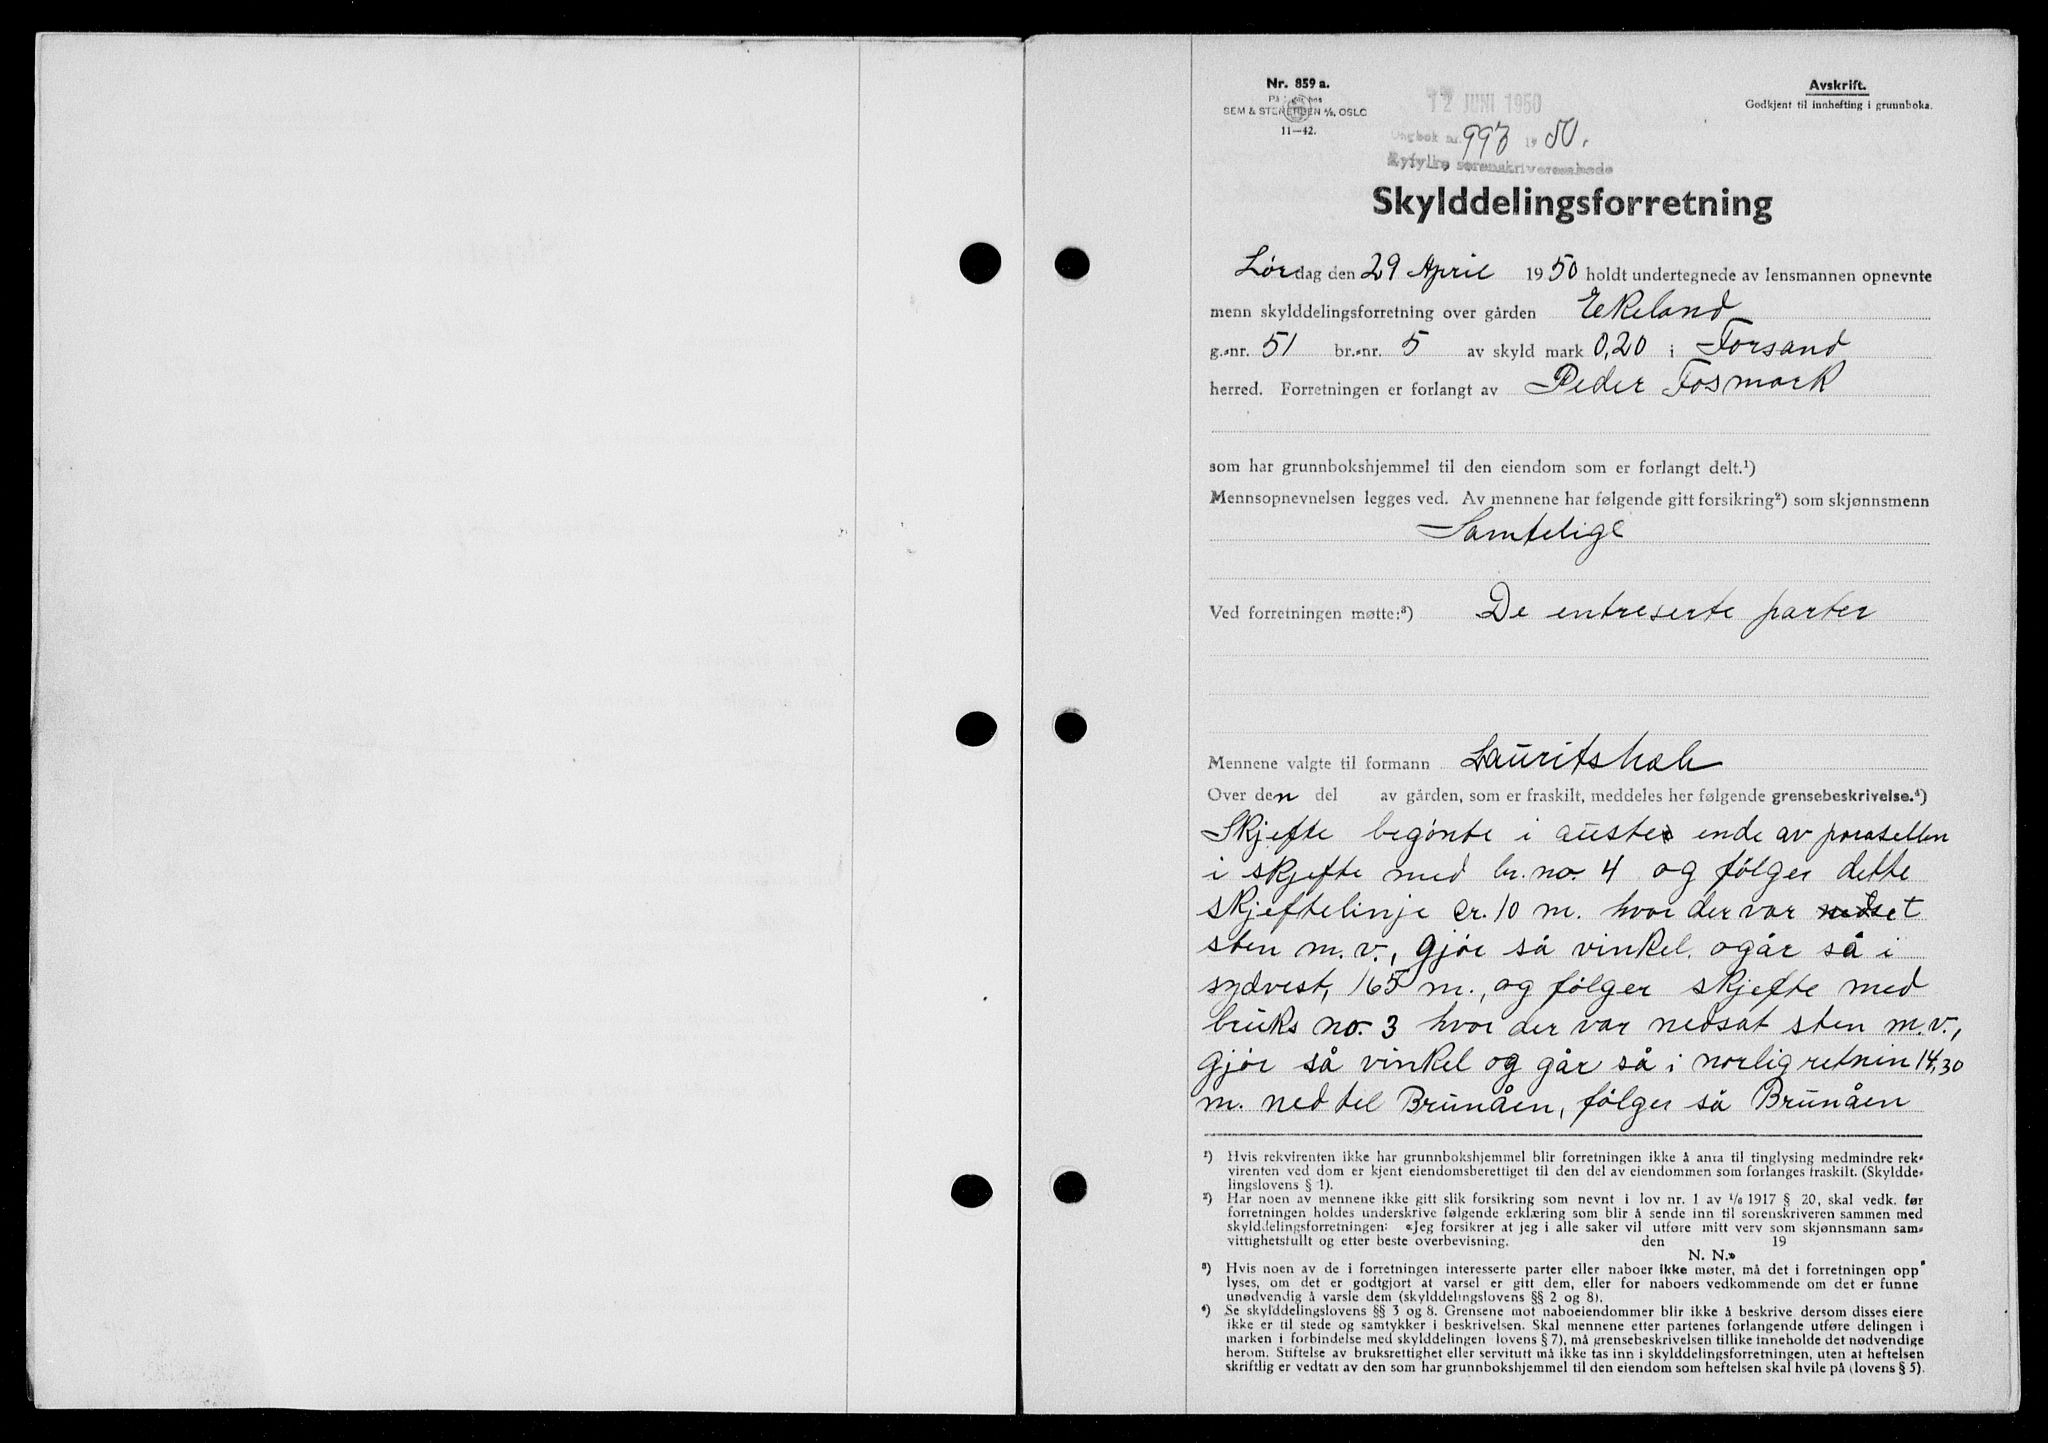 Nr. 859 a.
SEM & STENERSEN A/S, OSLO
11—42.
Avskrift.
Godkjent til innhefting i grunnboka.
12 JUNI 1950
Dagbok nr. 993 1950.
Ryfylke sorenskriverembede
Skylddelingsforretning
Lørdag den 29 April 1950 holdt undertegnede av lensmannen opnevnte
menn skylddelingsforretning over gården Ekeland
g.-nr. 51 br.-nr. 5 av skyld mark 0,20 i Forsand
herred. Forretningen er forlangt av Peder Fosmark
som har grunnbokshjemmel til den eiendom som er forlangt delt.¹)
Mennsopnevnelsen legges ved. Av mennene har følgende gitt forsikring²) som skjønnsmenn
Samtelige
Ved forretningen møtte:³) De entreserte parter
Mennene valgte til formann Laurits
Over den del av gården, som er fraskilt, meddeles her følgende grensebeskrivelse.⁴)
Skjefte begønte i auste ende av parasellen
i skjefte med br. no. 4 og følger dette
skjeftelinje cr. 10 m. hvor der var nedset
sten m.v., gjør så vinkel. ogår så i
sydvest, 165 m., og følger skjefte med
bruks no. 3 hvor der var nedsat sten m.v.,
gjør så vinkel og går så i norlig retnin 14,30
m. ned til Brunåen, følger så Brunåen
¹) Hvis rekvirenten ikke har grunnbokshjemmel blir forretningen ikke å anta til tinglysing medmindre rek-
virenten ved dom er kjent eiendomsberettiget til den del av eiendommen som forlanges fraskilt. (Skyldde-
lingslovens § 1).
²) Har noen av mennene ikke gitt slik forsikring som nevnt i lov nr. 1 av 1/6 1917 § 20, skal vedk. før
forretningen holdes underskrive følgende erklæring som blir å sende inn til sorenskriveren sammen med
skylddelingsforretningen: «Jeg forsikrer at jeg i alle saker vil utføre mitt verv som skjønnsmann sam-
vittighetsfullt og etter beste overbevisning. den 19
N. N.»
³) Hvis noen av de i forretningen interesserte parter eller naboer ikke møter, må det i forretningen opp-
lyses, om det er godtgjort at varsel er gitt dem, eller for naboers vedkommende om det er funne
unødvendig å varsle dem (skylddelingslovens §§ 2 og 8).
⁴) Se skylddelingslovens §§ 3 og 8. Grensene mot naboeiendommer blir ikke å beskrive dersom disses eiere
ikke er til stede og samtykker i beskrivelsen. Skal mennene etter partenes forlangende utføre delingen i
marken i forbindelse med skylddelingen (lovens § 7), må grensebeskrivelsen tillike inneholde det nødvendige
herom. Stiftelse av bruksrettighet eller servitutt må ikke tas inn i skylddelingsforretningen, uten at heftelsen
skriftlig er vedtatt av den som har grunnbokshjemmel til den eiendom som heftelsen skal hvile på (lovens § 5).